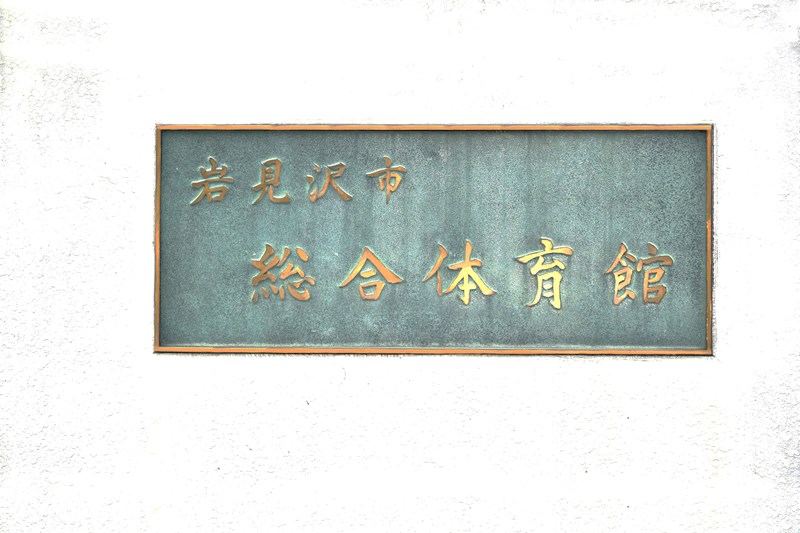 岩見沢市
総合体育館